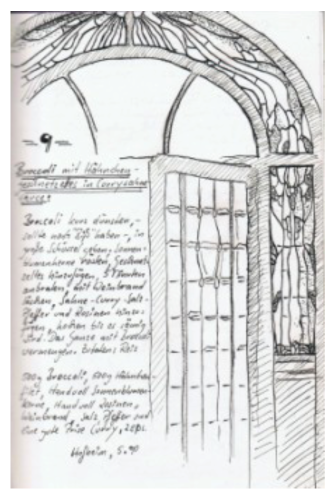 - 9 -
Broccoli mit Hähnchen-
geschnetzeltes in Currysahne
sauce:
Broccoli kurz dünsten, -
sollte noch "Biß" haben -, in
große Schüssel geben, Sonnen-
blumenkerne rösten, Geschnet-
zeltes hinzufügen, 5 Minuten
anbraten, mit Weinbrand
löschen, Sahne - Curry - Salz -
Pfeffer und Rosinen hinzu-
fügen, kochen bis es sämig
ist. Das Ganze mit Broccoli
vermengen. Reis
Broccoli, Hähnchen
filet, Handvoll Sonnenblumen
kerne, Handvoll Rosinen,
Weinbrand, Salz, Pfeffer und
eine gute Prise Curry,
Hofheim, 5.90